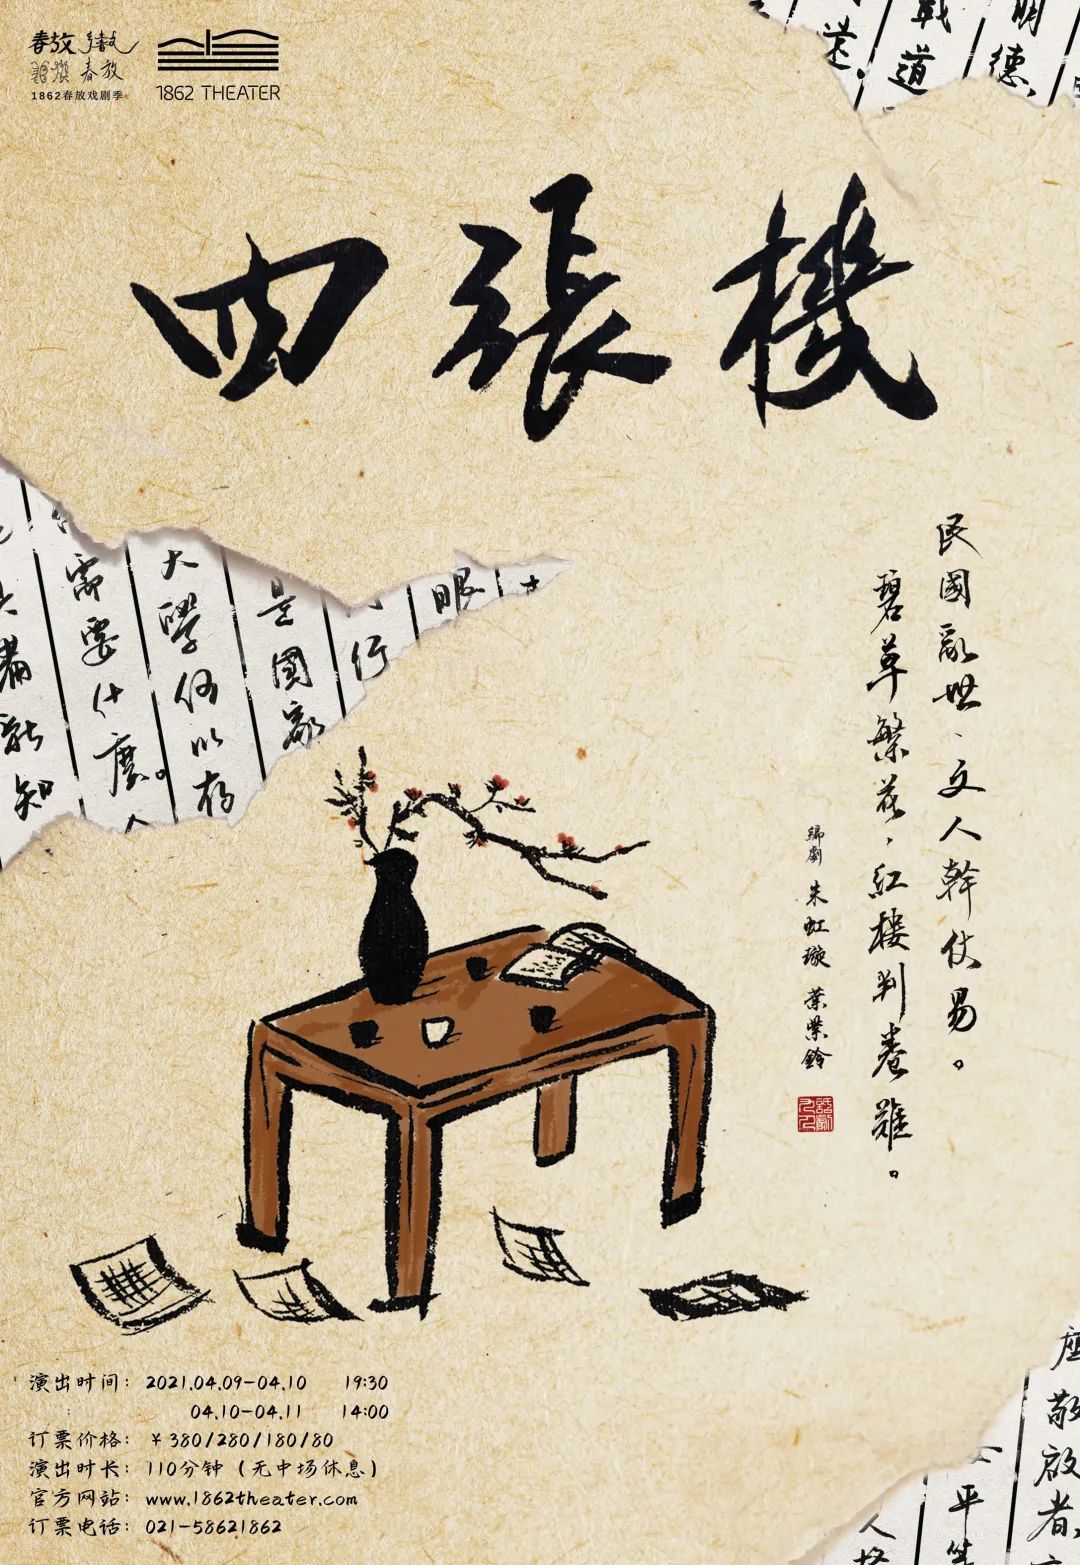 春放
春放
1862春放戏剧季
1862 THEATER
戰道
明德
四張機
需要什麼。
大學何以存
是國家
行
眼
能知
民國亂世、文人幹仗易。
碧草繁花，紅樓判卷難。
編劇 朱虹璇 葉紫鈴
演出时间：2021.04.09-04.10 19:30
04.10-04.11 14:00
订票价格：￥380/280/180/80
演出时长：110分钟（无中场休息）
官方网站：www.1862theater.com
订票电话：021-58621862
敬啟者
平
人格